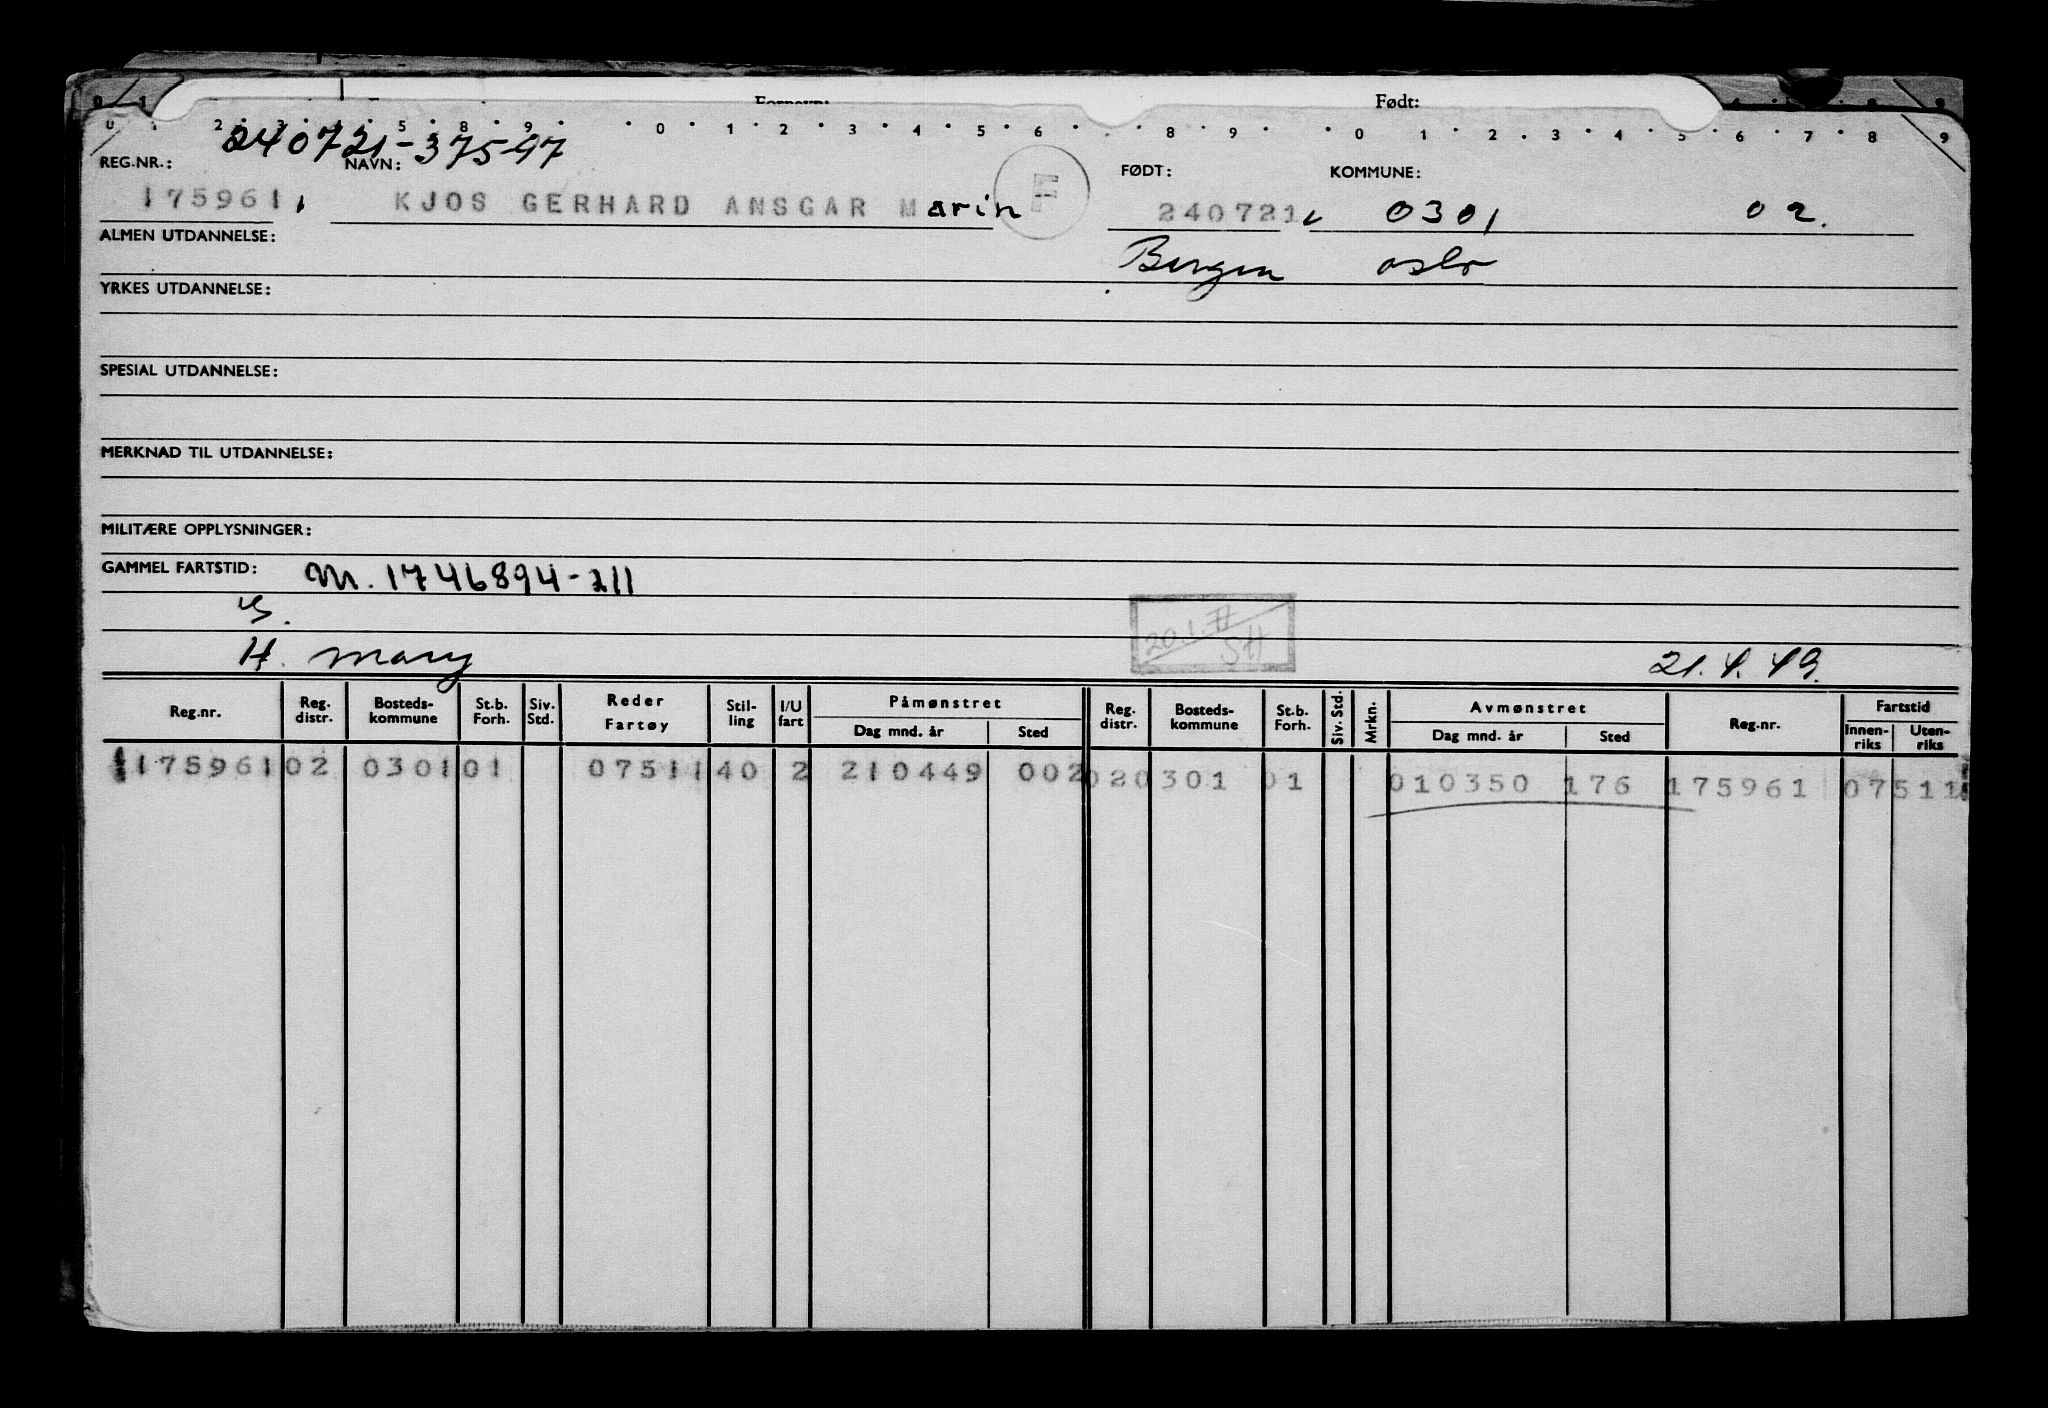 Født:
240721-37597
REG.NR.: NAVN: FØDT: KOMMUNE:
175961 KJOS GERHARD ANSGAR Marin F 240721 0301 02.
ALMEN UTDANNELSE: Bergen Oslo
YRKES UTDANNELSE:
SPESIAL UTDANNELSE:
MERKNAD TIL UTDANNELSE:
MILITÆRE OPPLYSNINGER:
GAMMEL FARTSTID: M. 1746894-211
20.1.71 SH
H. Mary 21.4.49.
Reg.nr. Reg. distr. Bosteds-kommune St.b. Forh. Siv. Std. Reder Fartøy Stil-ling I/U fart Påmønstret Dag mnd. år Sted Reg. distr. Bosteds-kommune St.b. Forh. Siv. Std. Mrkn. Avmønstret Dag mnd. år Sted Reg.nr. Fartstid Innen-riks Uten-riks
175961 02 0301 01 07511 40 2 210449 002 02 0301 01 010350 176 175961 07511